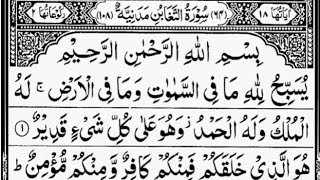 اٰیَاتُهَا ۱۸ (۶۴) سُوْرَةُ التَّغَابُنِ مَدَنِيَّةٌ (۱۰۸) رُكُوْعَاتُهَا ۲
بِسْمِ اللّٰهِ الرَّحْمٰنِ الرَّحِيْمِ
يُسَبِّحُ لِلّٰهِ مَا فِى السَّمٰوٰتِ وَمَا فِى الْاَرْضِ ۚ لَهُ
الْمُلْكُ وَلَهُ الْحَمْدُ ۫ وَهُوَ عَلٰى كُلِّ شَىْءٍ قَدِيْرٌ ۝۱
هُوَ الَّذِىْ خَلَقَكُمْ فَمِنْكُمْ كَافِرٌ وَّمِنْكُمْ مُّؤْمِنٌ ؕ